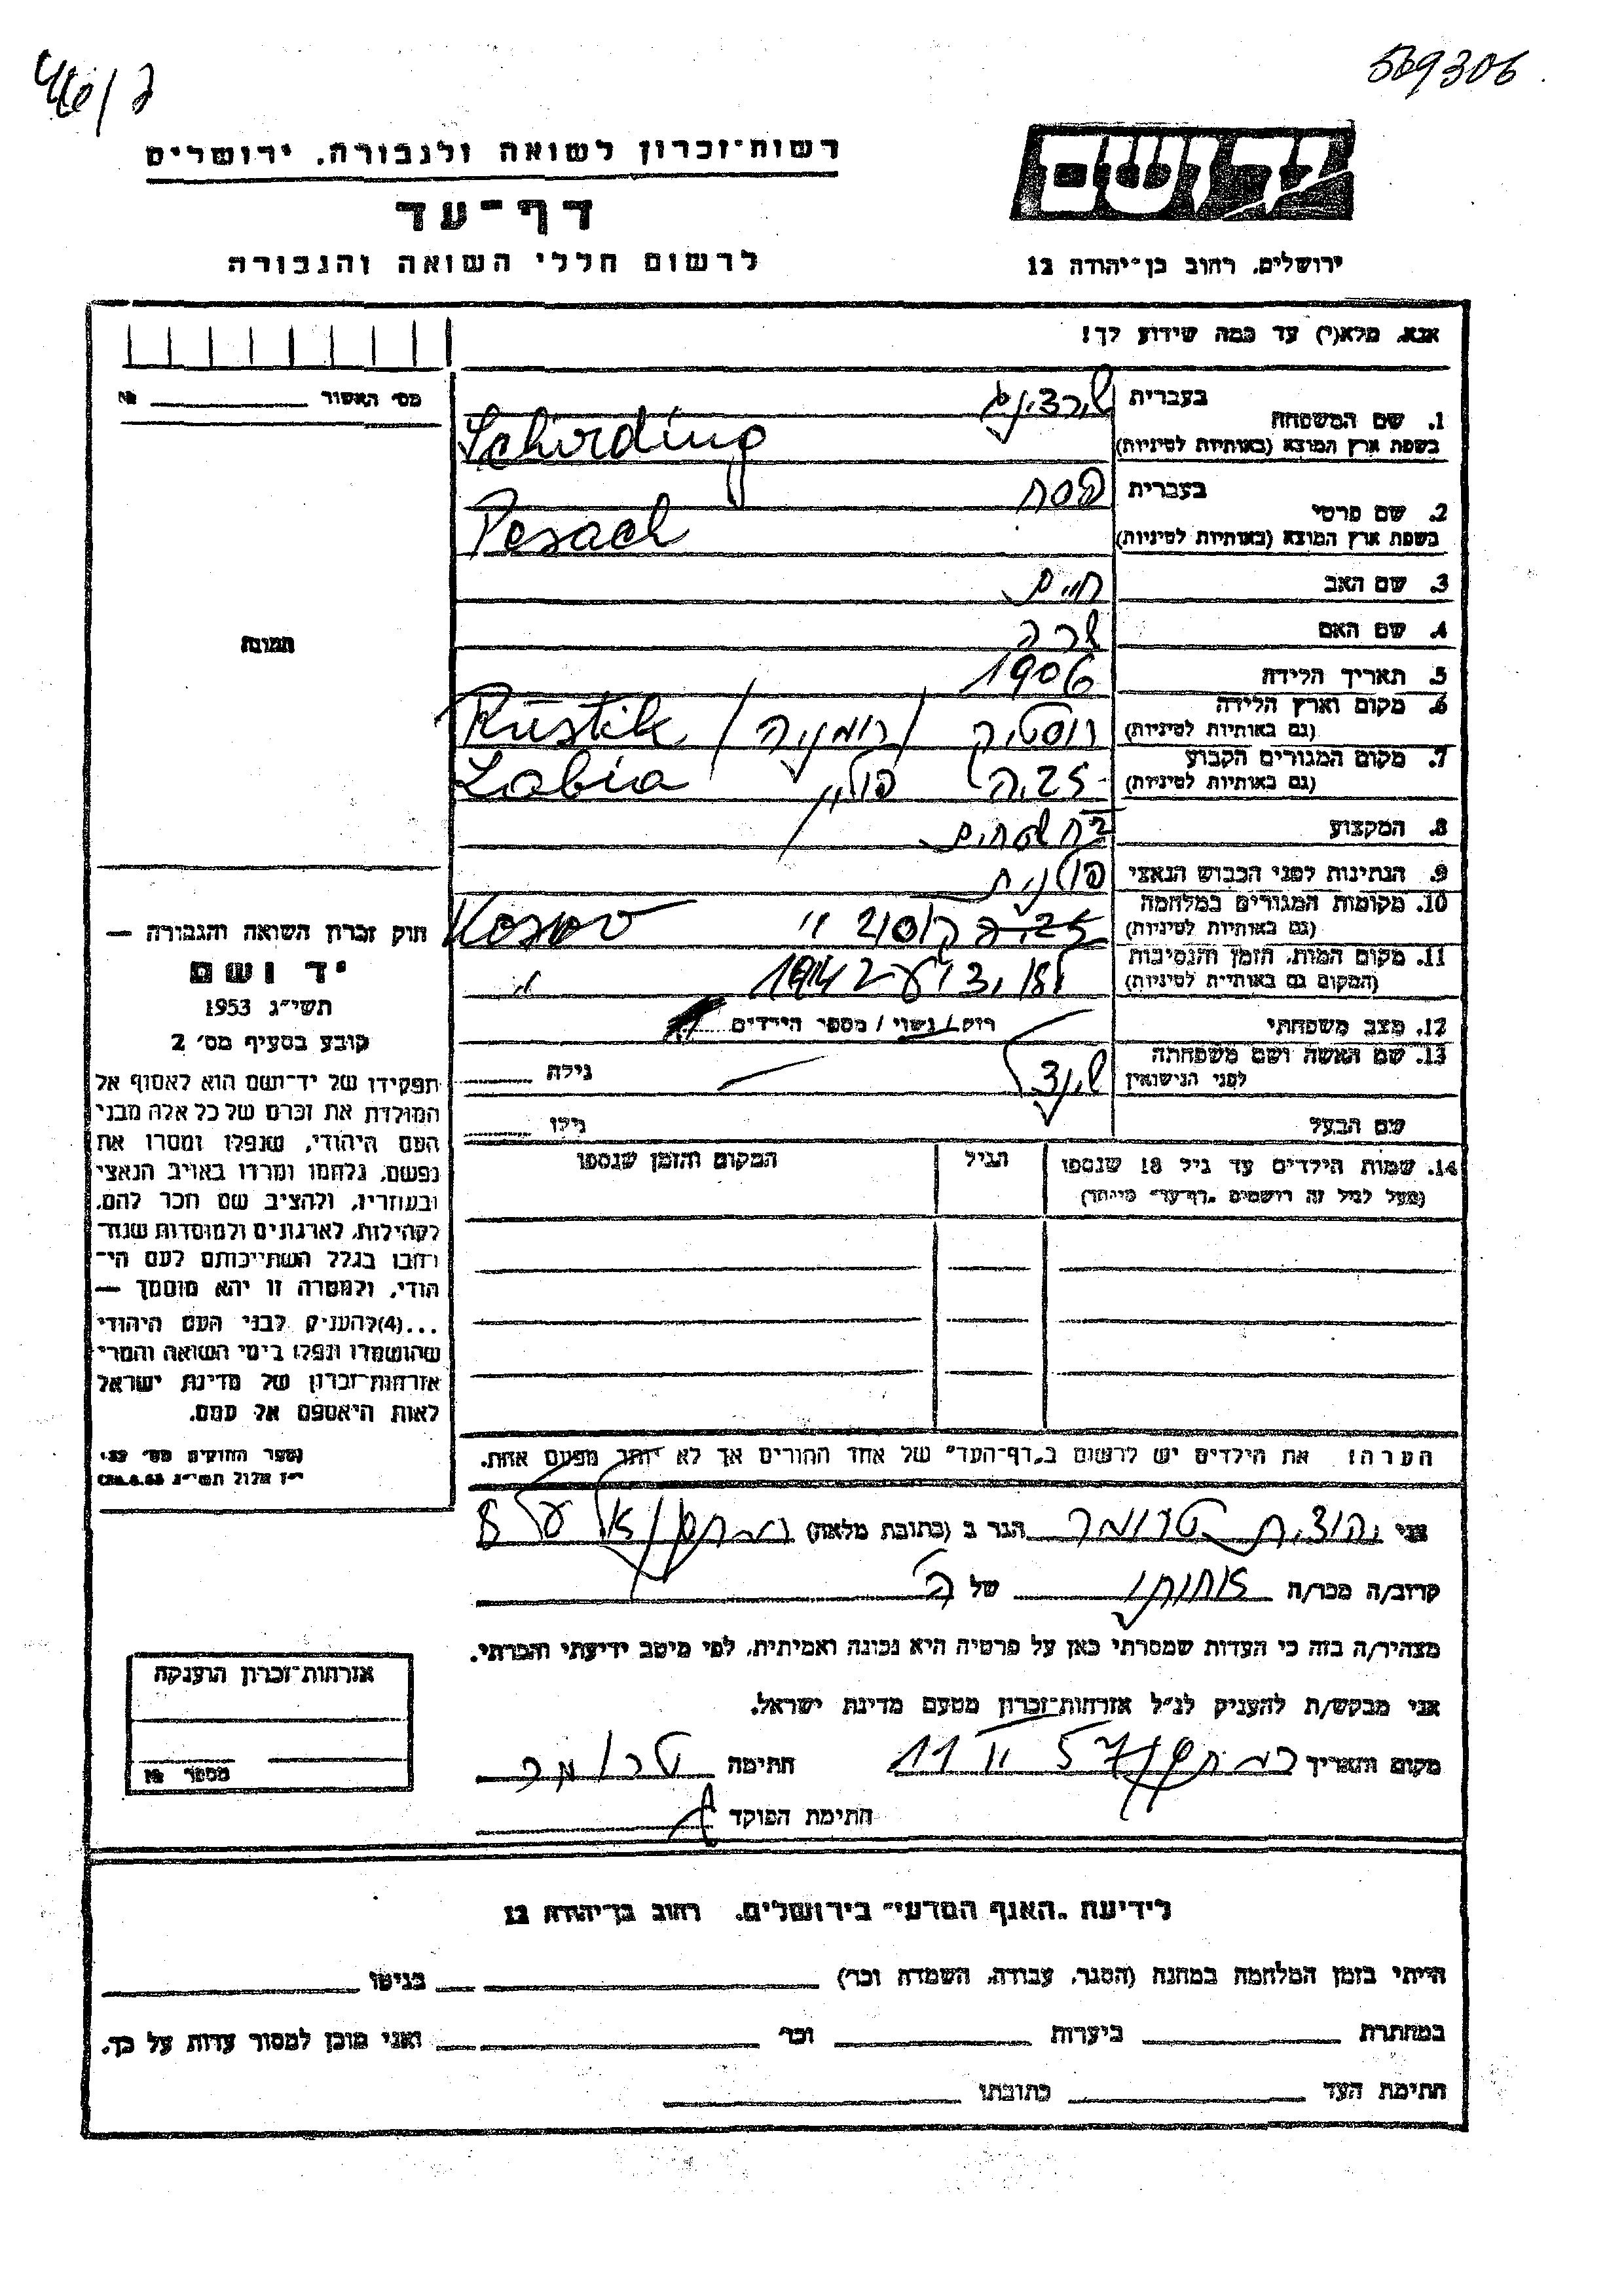 46/2
569306
רשות־זכרון לשואה ולגבורה, ירושלים
דף־עד
לרשום חללי השואה והגבורה
יד ושם
ירושלים, רחוב בן־יהודה 12
אנא, מלא(י) עד כמה שידוע לך!
מס׳ האשור
№
תמונה
1. שם המשפחה
בעברית
שירדינג
בשפת ארץ המוצא (באותיות לטיניות)
Schirding
2. שם פרטי
בעברית
פסח
בשפת ארץ המוצא (באותיות לטיניות)
Pesach
3. שם האב
חיים
4. שם האם
שרה
5. תאריך הלידה
1906
6. מקום וארץ הלידה
(גם באותיות לטיניות)
רוסטיק / רומניה / Rustik
7. מקום המגורים הקבוע
(גם באותיות לטיניות)
פולין Zabia
8. המקצוע
9. הנתינות לפני הכבוש הנאצי
פולנית
10. מקומות המגורים במלחמה
(גם באותיות לטיניות)
קוסוב " Kosov
11. מקום המות, הזמן והנסיבות
(המקום גם באותיות לטיניות)
1942 "
12. מצב משפחתי
רוק/נשוי/מספר הילדים
13. שם האשה ושם משפחתה
לפני הנישואין
גילה
שם הבעל
גילו
14. שמות הילדים עד גיל 18 שנספו
(מעל לגיל זה רושמים „דף־עד״ מיוחד)
הגיל
המקום והזמן שנספו
הערה: את הילדים יש לרשום ב„דף־העד״ של אחד ההורים אך לא יותר מפעם אחת.
חוק זכרון השואה והגבורה —
יד ושם
תשי״ג 1953
קובע בסעיף מס׳ 2
תפקידו של יד־ושם הוא לאסוף אל
המולדת את זכרם של כל אלה מבני
העם היהודי, שנפלו ומסרו את
נפשם, נלחמו ומרדו באויב הנאצי
ובעוזריו, ולהציב שם וזכר להם,
לקהילות, לארגונים ולמוסדות שנח־
רבו בגלל השתייכותם לעם הי־
הודי, ולמטרה זו יהא מוסמך —
...(4) להעניק לבני העם היהודי
שהושמדו ונפלו בימי השואה והמרי
אזרחות־זכרון של מדינת ישראל
לאות היאספם אל עמם.
ספר החוקים מס׳ 132
י״ז אלול תשי״ג 28.8.53
אני יהודית שטרומר הגר ב (כתובת מלאה)
קרוב/ה מכר/ה אחותו של
מצהיר/ה בזה כי העדות שמסרתי כאן על פרטיה היא נכונה ואמיתית, לפי מיטב ידיעתי והכרתי.
אני מבקש/ת להעניק לנ״ל אזרחות־זכרון מטעם מדינת ישראל.
מקום ותאריך 11 II 57 חתימה
חתימת הפוקד
אזרחות־זכרון הוענקה
מספר №
לידיעת „האגף המדעי״ בירושלים, רחוב בן־יהודה 12
הייתי בזמן המלחמה במחנה (הסגר, עבודה, השמדה וכו׳) בגיטו
במחתרת ביערות וכו׳ ואני מוכן למסור עדות על כך.
חתימת העד כתובתו